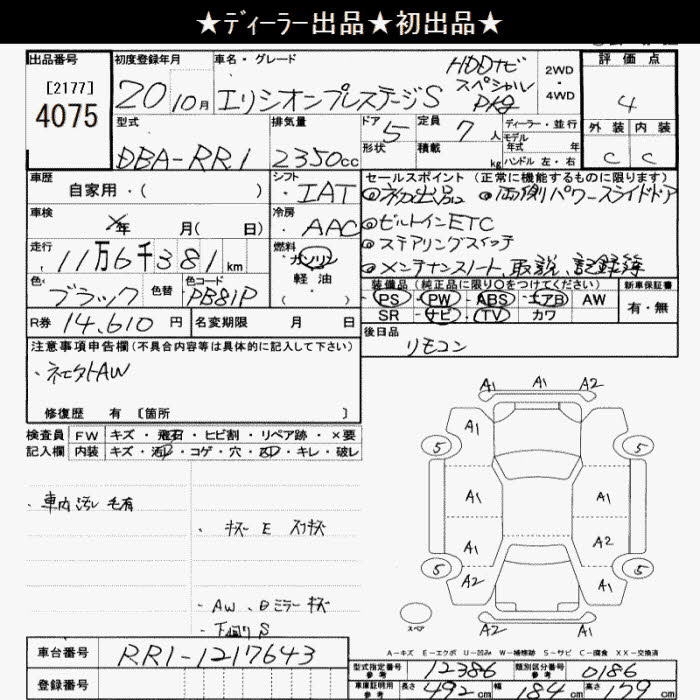 ★ディーラー出品★初出品★
出品番号
[2177]
4075
初度登録年月
20 10月
車名・グレード
エリシオンプレステージS
HDDナビ
スペシャル
PKg
2WD
・
4WD
評価点
4
型式
DBA-RR1
排気量
2350cc
ドア 5
形状
定員 7人
積載 kg
ディーラー・並行
モデル
年式 年
ハンドル 左・右
外装 内装
C C
車歴
自家用・( )
シフト
IAT
セールスポイント (正常に機能するものに限ります)
◎初出品 ◎両側パワースライドドア
◎ビルトインETC
◎ステアリングスイッチ
◎メンテナンスノート、取説、記録簿
車検
年 月( 日)
冷房
AAC
走行
11万6千381km
燃料
ガソリン
・
軽油
色
ブラック
色替
色コード
PB81P
装備品 (純正品に限り○をつけてください)
PS・PW・ABS・エアB・AW
SR・ナビ・TV・カワ
新車保証書
有・無
R券 14,610円
名変期限 月 日
後日品
リモコン
注意事項申告欄(不具合内容等は具体的に記入して下さい)
・社外AW
修復歴 有 [箇所 ]
検査員
記入欄
FW キズ・飛石・ヒビ割・リペア跡・×要
内装 キズ・汚・コゲ・穴・凹・キレ・破レ
・車内汚レ 毛有
・AW、Dミラーキズ
・下廻りS
A1 A1 A2
A1
5 5
A1 A1
A1 A2
5 5
A2 A1
スペア
A2 A2
A-キズ E-エクボ U-凹み W-補修跡 S-サビ C-腐食 XX-交換済
車台番号
RR1-1217643
登録番号
型式指定番号
参考
12386
類別区分番号
参考
0186
車庫証明用
参考
長さ 492cm 幅 184cm 高さ 179cm